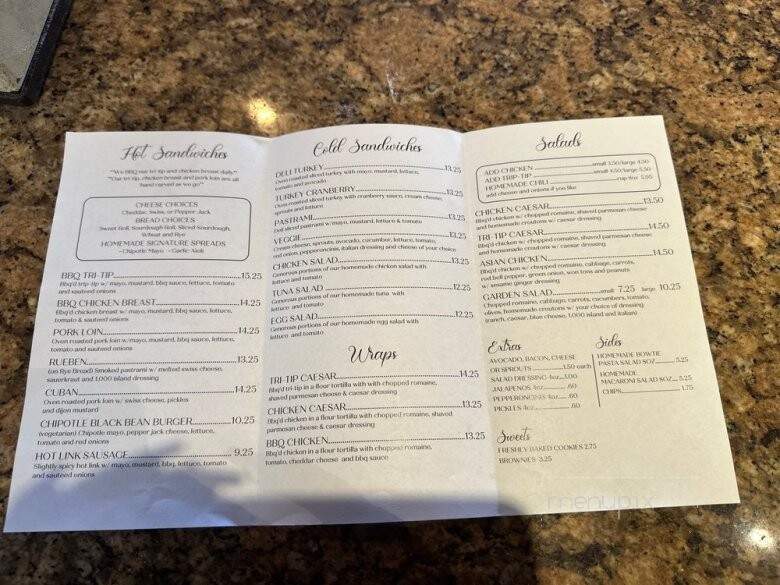 Hot Sandwiches
"We BBQ our tri tip and chicken breast daily"
"Our tri tip, chicken breast and pork loin are all
hand carved as we go"
CHEESE CHOICES
Cheddar, Swiss, or Pepper Jack
BREAD CHOICES
Sweet Roll, Sourdough Roll, Sliced Sourdough,
Wheat and Rye
HOMEMADE SIGNATURE SPREADS
~Chipotle Mayo ~Garlic Aioli
BBQ TRI-TIP 15.25
Bbq'd trip-tip w/ mayo, mustard, bbq sauce, lettuce, tomato
and sauteed onions
BBQ CHICKEN BREAST 14.25
Bbq'd chicken breast w/ mayo, mustard, bbq sauce, lettuce,
tomato & sauteed onions
PORK LOIN 14.25
Oven roasted pork loin w/ mayo, mustard, bbq sauce, lettuce,
tomato and sauteed onions
RUEBEN 13.25
(on Rye Bread) Smoked pastrami w/ melted swiss cheese,
sauerkraut and 1,000 island dressing
CUBAN 14.25
Oven roasted pork loin w/ swiss cheese, pickles
and dijon mustard
CHIPOTLE BLACK BEAN BURGER 10.25
(vegetarian) Chipotle mayo, pepper jack cheese, lettuce,
tomato and red onions
HOT LINK SAUSAGE 9.25
Slightly spicy hot link w/ mayo, mustard, bbq, lettuce, tomato
and sauteed onions
Cold Sandwiches
DELI TURKEY 13.25
Oven roasted sliced turkey with mayo, mustard, lettuce,
tomato and avocado
TURKEY CRANBERRY 13.25
Oven roasted sliced turkey with cranberry sauce, cream cheese,
sprouts and lettuce
PASTRAMI 13.25
Deli sliced pastrami w/mayo, mustard, lettuce & tomato
VEGGIE 13.25
Cream cheese, sprouts, avocado, cucumber, lettuce, tomato,
red onion, pepperoncinis, italian dressing and cheese of your choice
CHICKEN SALAD 13.25
Generous portions of our homemade chicken salad with
lettuce and tomato
TUNA SALAD 12.25
Generous portions of our homemade tuna with
lettuce and tomato
EGG SALAD 12.25
Generous portions of our homemade egg salad with
lettuce and tomato
Wraps
TRI-TIP CAESAR 14.25
Bbq'd tri-tip in a flour tortilla with with chopped romaine,
shaved parmesan cheese & caesar dressing
CHICKEN CAESAR 13.25
Bbq'd chicken in a flour tortilla with chopped romaine, shaved
parmesan cheese & caesar dressing
BBQ CHICKEN 13.25
Bbq'd chicken in a flour tortilla with chopped romaine,
tomato, cheddar cheese and bbq sauce
Salads
ADD CHICKEN small 3.50/large 4.50
ADD TRIP-TIP small 4.50/large 5.50
HOMEMADE CHILI cup 8oz 5.95
add cheese and onions if you like
CHICKEN CAESAR 13.50
Bbq'd chicken w/ chopped romaine, shaved parmesan cheese
and homemade croutons w/ caesar dressing
TRI-TIP CAESAR 14.50
Bbq'd chicken w/ chopped romaine, shaved parmesan cheese
and homemade croutons w/ caesar dressing
ASIAN CHICKEN 14.50
Bbq'd chicken w/ chopped romaine, cabbage, carrots,
red bell pepper, green onion, won tons and peanuts
w/ sesame ginger dressing
GARDEN SALAD small 7.25 large 10.25
Chopped romaine, cabbage, carrots, cucumbers, tomato,
olives, homemade croutons w/ your choice of dressing
(ranch, caesar, blue cheese, 1,000 island and italian)
Extras
AVOCADO, BACON, CHEESE
OR SPROUTS 1.50 each
SALAD DRESSING 4oz 1.00
JALAPENOS 4oz .60
PEPPERONCINIS 4oz .60
PICKLES 4oz .60
Sides
HOMEMADE BOWTIE
PASTA SALAD 8OZ 5.25
HOMEMADE
MACARONI SALAD 8OZ 5.25
CHIPS 1.75
Sweets
FRESHLY BAKED COOKIES 2.75
BROWNIES 3.25
menupix